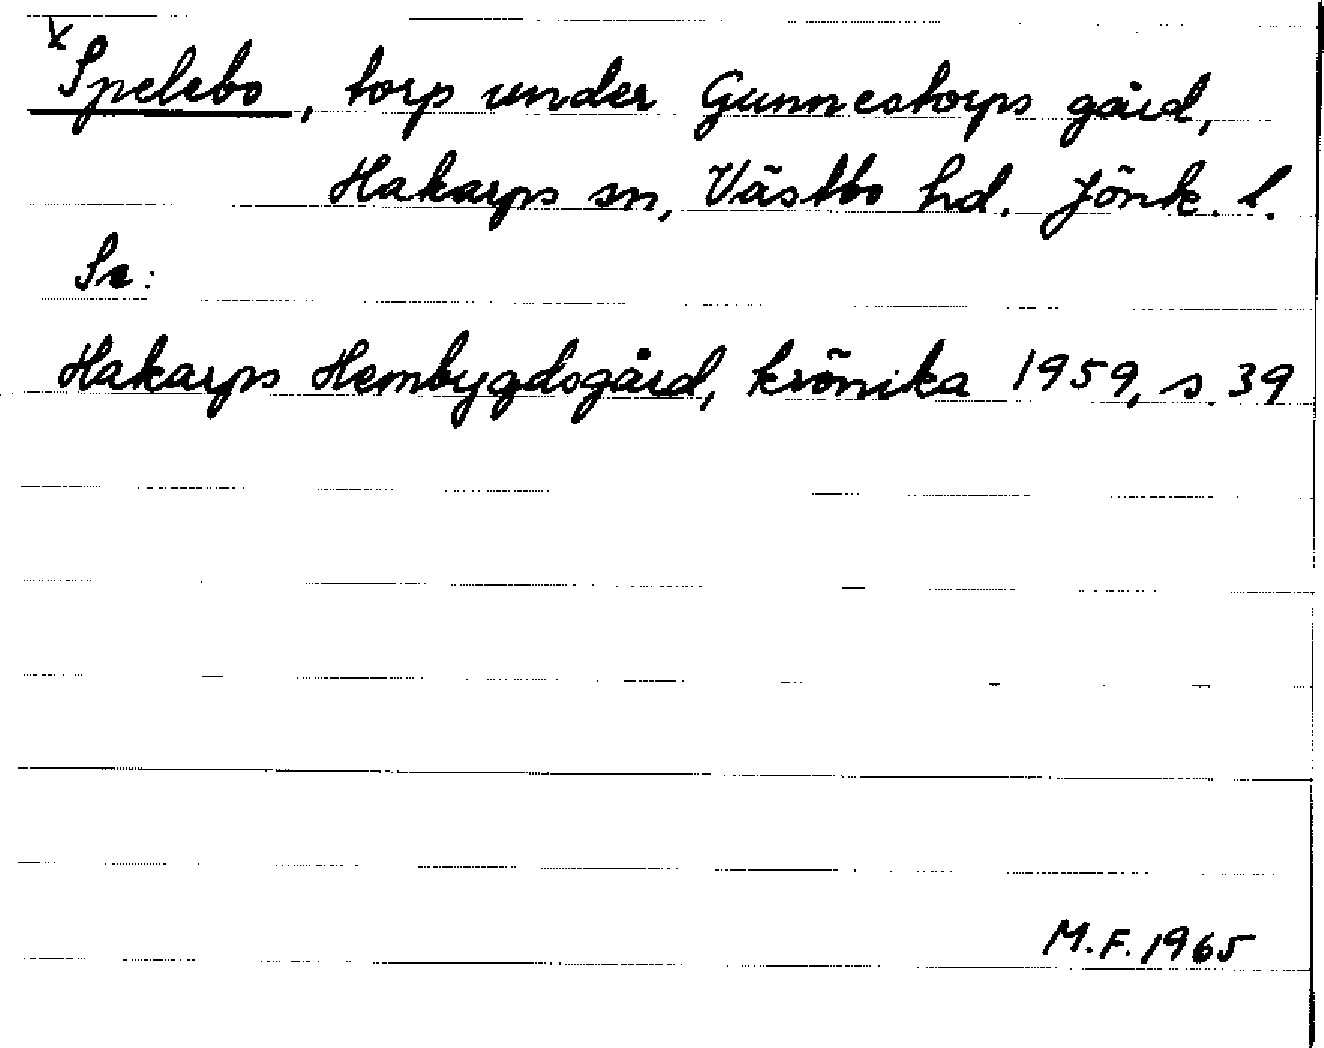 x
Spelebo, torp under Gunnestorps gård,
Hakarps sn, Västbo hd. Jönk. l.
Se:
Hakarps Hembygdsgård, krönika 1959, s. 39
M.F. 1965